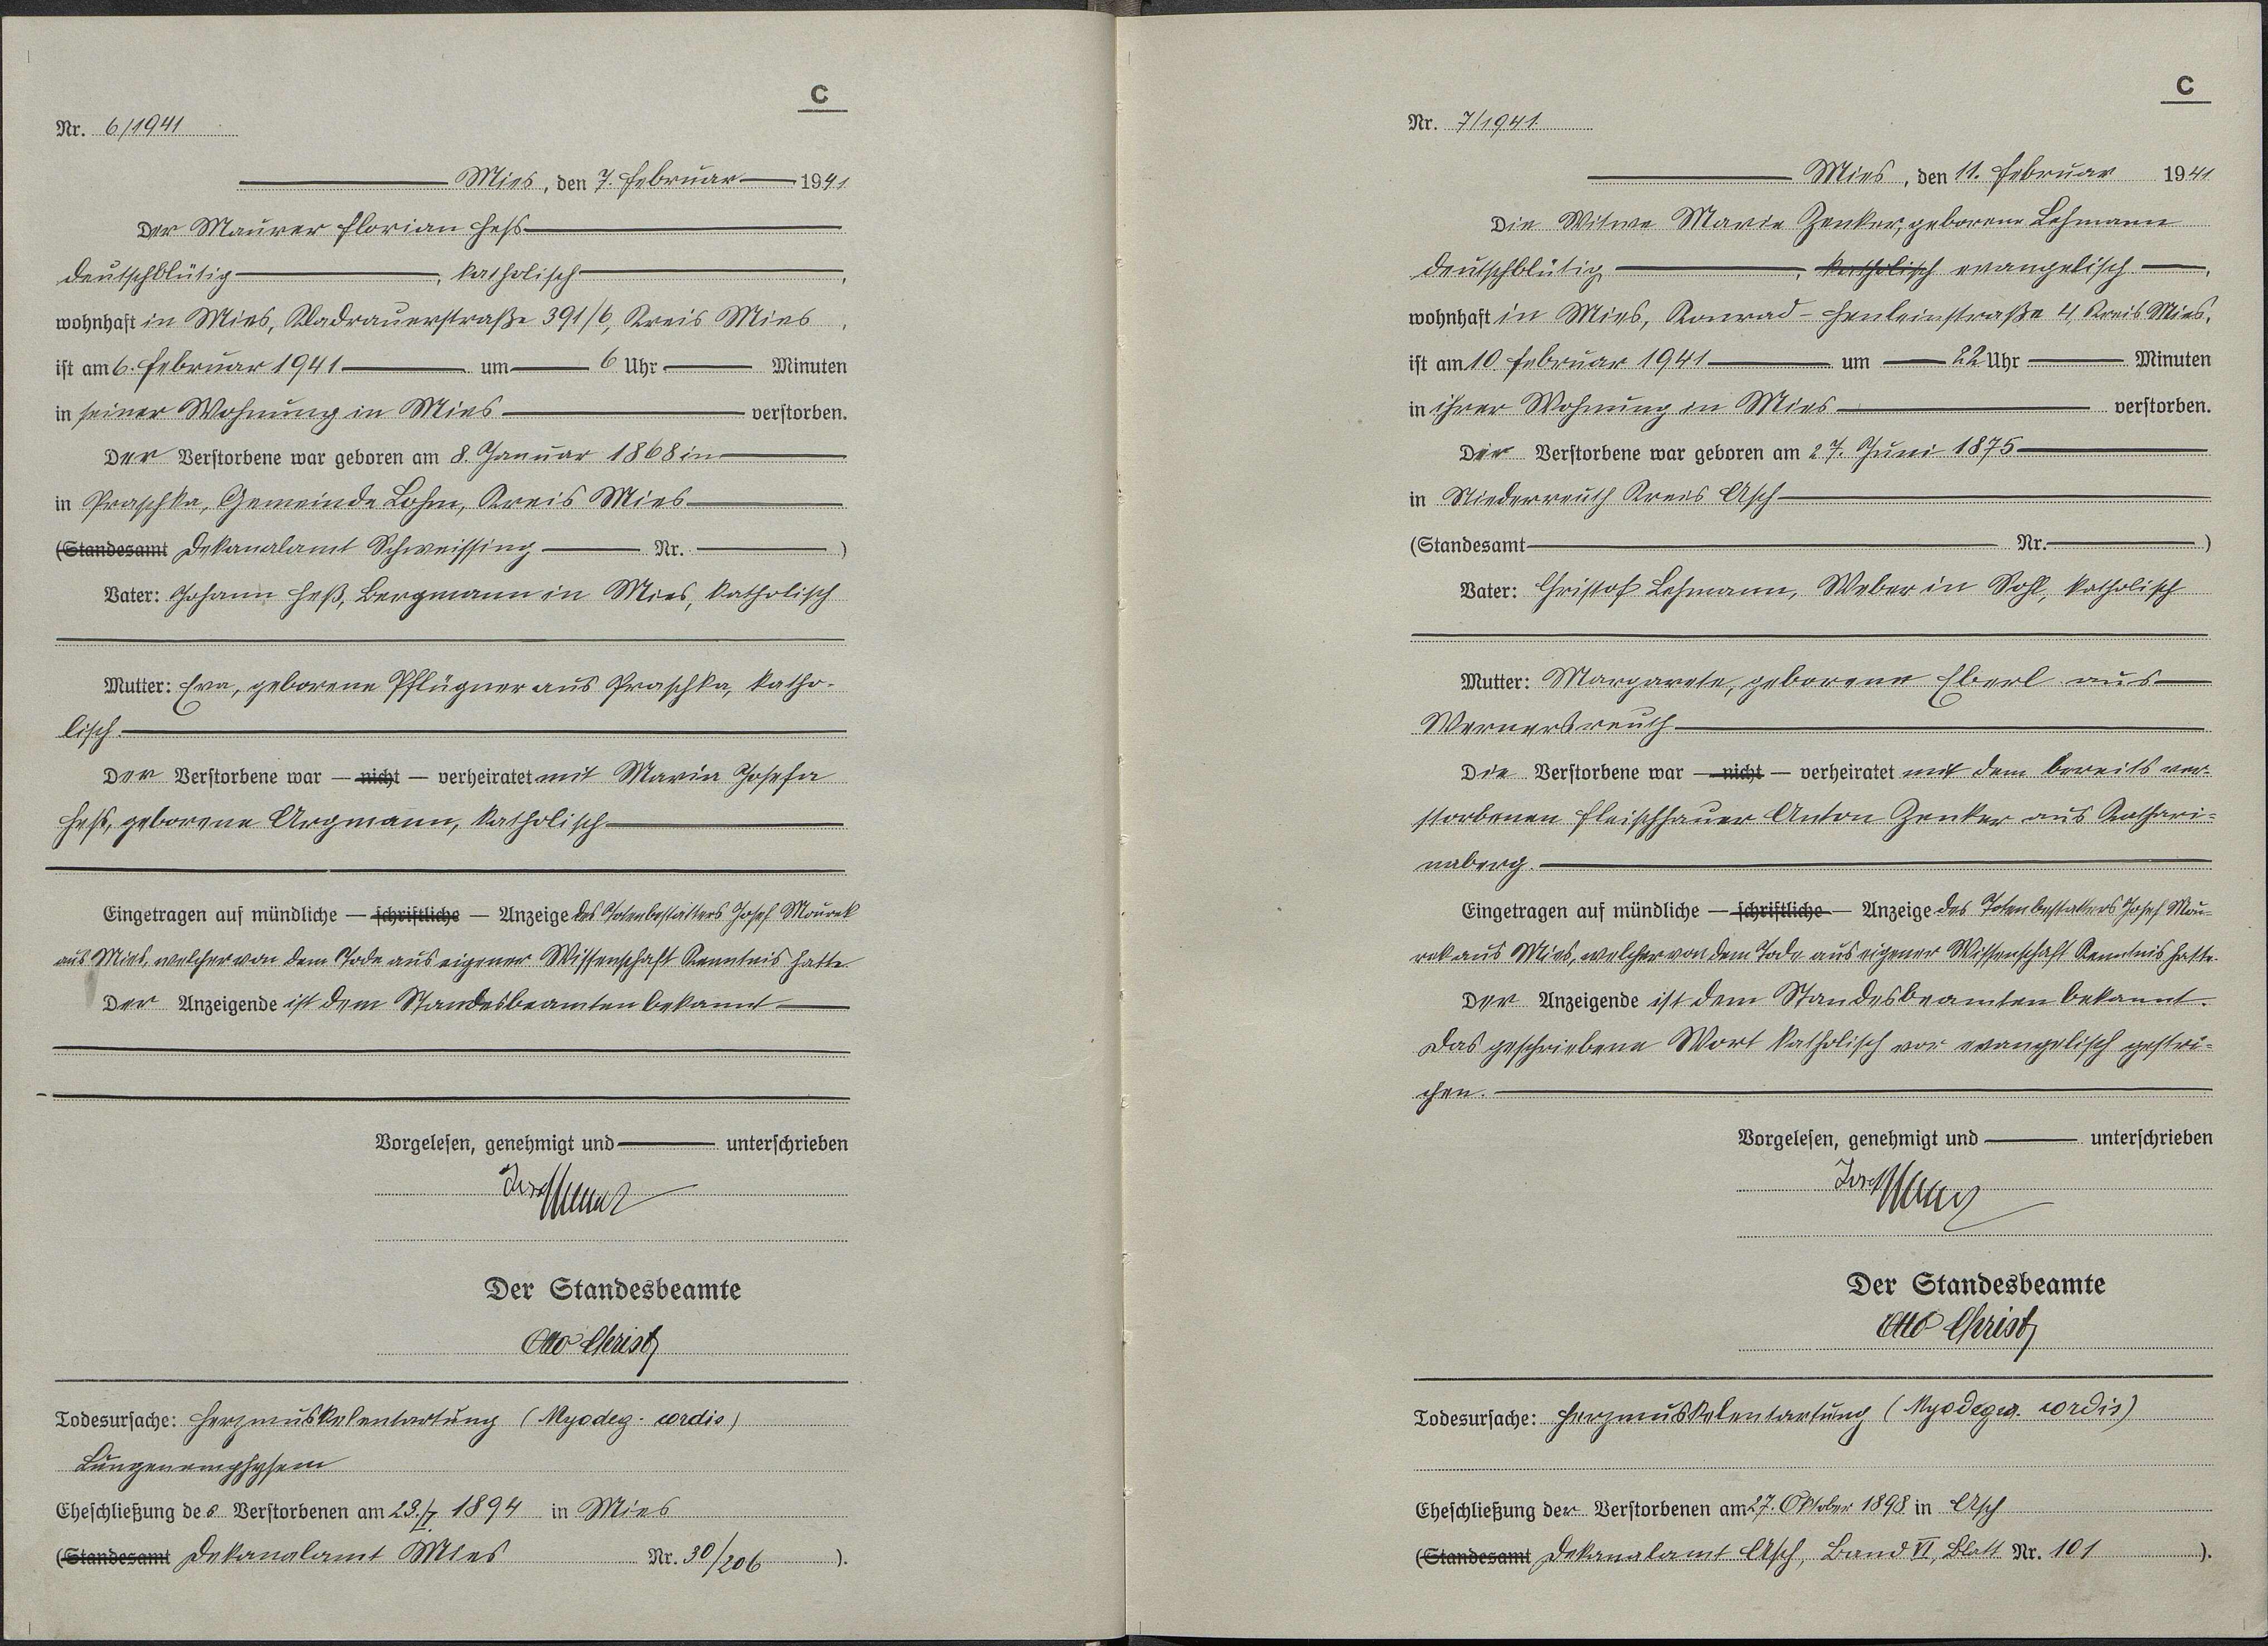 C
Nr. 6/1941
Mies, den 7. Februar 1941
Der Maurer Florian Hess
deutschblütig, katholisch,
wohnhaft in Mies, Kladrauerstraße 391/6, Kreis Mies,
ist am 6. Februar 1941 um 6 Uhr Minuten
in seiner Wohnung in Mies verstorben.
Der Verstorbene war geboren am 8. Januar 1868 in
in Praschka, Gemeinde Lohm, Kreis Mies
(Standesamt Dekanalamt Schweissing Nr. )
Vater: Johann Heß, Bergmann in Mies, katholisch
Mutter: Eva, geborene Pflügner aus Praschka, katho-
lisch.
Der Verstorbene war — nicht — verheiratet mit Maria Josefa
Hess, geborene Argmann, katholisch
Eingetragen auf mündliche — schriftliche — Anzeige des Totenbestatters Josef Maurek
aus Mies, welcher von dem Tode aus eigener Wissenschaft Kenntnis hatte.
Der Anzeigende ist dem Standesbeamten bekannt
Vorgelesen, genehmigt und unterschrieben
Der Standesbeamte
Otto Christ
Todesursache: Herzmuskelentartung (Myodeg. cordis)
Lungenemphysem
Eheschließung des Verstorbenen am 23./I. 1894 in Mies
(Standesamt Dekanalamt Mies Nr. 30/206 ).
C
Nr. 7/1941
Mies, den 11. Februar 1941
Die Witwe Marie Zenker, geborene Lehmann
deutschblütig, katholisch evangelisch,
wohnhaft in Mies, Konrad-Henleinstraße 4, Kreis Mies,
ist am 10. Februar 1941 um 22 Uhr Minuten
in ihrer Wohnung in Mies verstorben.
Die Verstorbene war geboren am 27. Juni 1875
in Niederreuth Kreis Asch
(Standesamt Nr. )
Vater: Christof Lehmann, Weber in Sohl, katholisch
Mutter: Margarete, geborene Eberl aus
Wernersreuth
Die Verstorbene war — nicht — verheiratet mit dem bereits ver-
storbenen Fleischhauer Anton Zenker aus Kathari-
naberg.
Eingetragen auf mündliche — schriftliche — Anzeige des Totenbestatters Josef Mau-
rek aus Mies, welcher von dem Tode aus eigener Wissenschaft Kenntnis hatte.
Der Anzeigende ist dem Standesbeamten bekannt.
Das geschriebene Wort katholisch vor evangelisch gestri-
chen.
Vorgelesen, genehmigt und unterschrieben
Der Standesbeamte
Otto Christ
Todesursache: Herzmuskelentartung (Myodegen. cordis)
Eheschließung der Verstorbenen am 27. Oktober 1898 in Asch
(Standesamt Dekanalamt Asch, Band VI, Blatt Nr. 101 ).